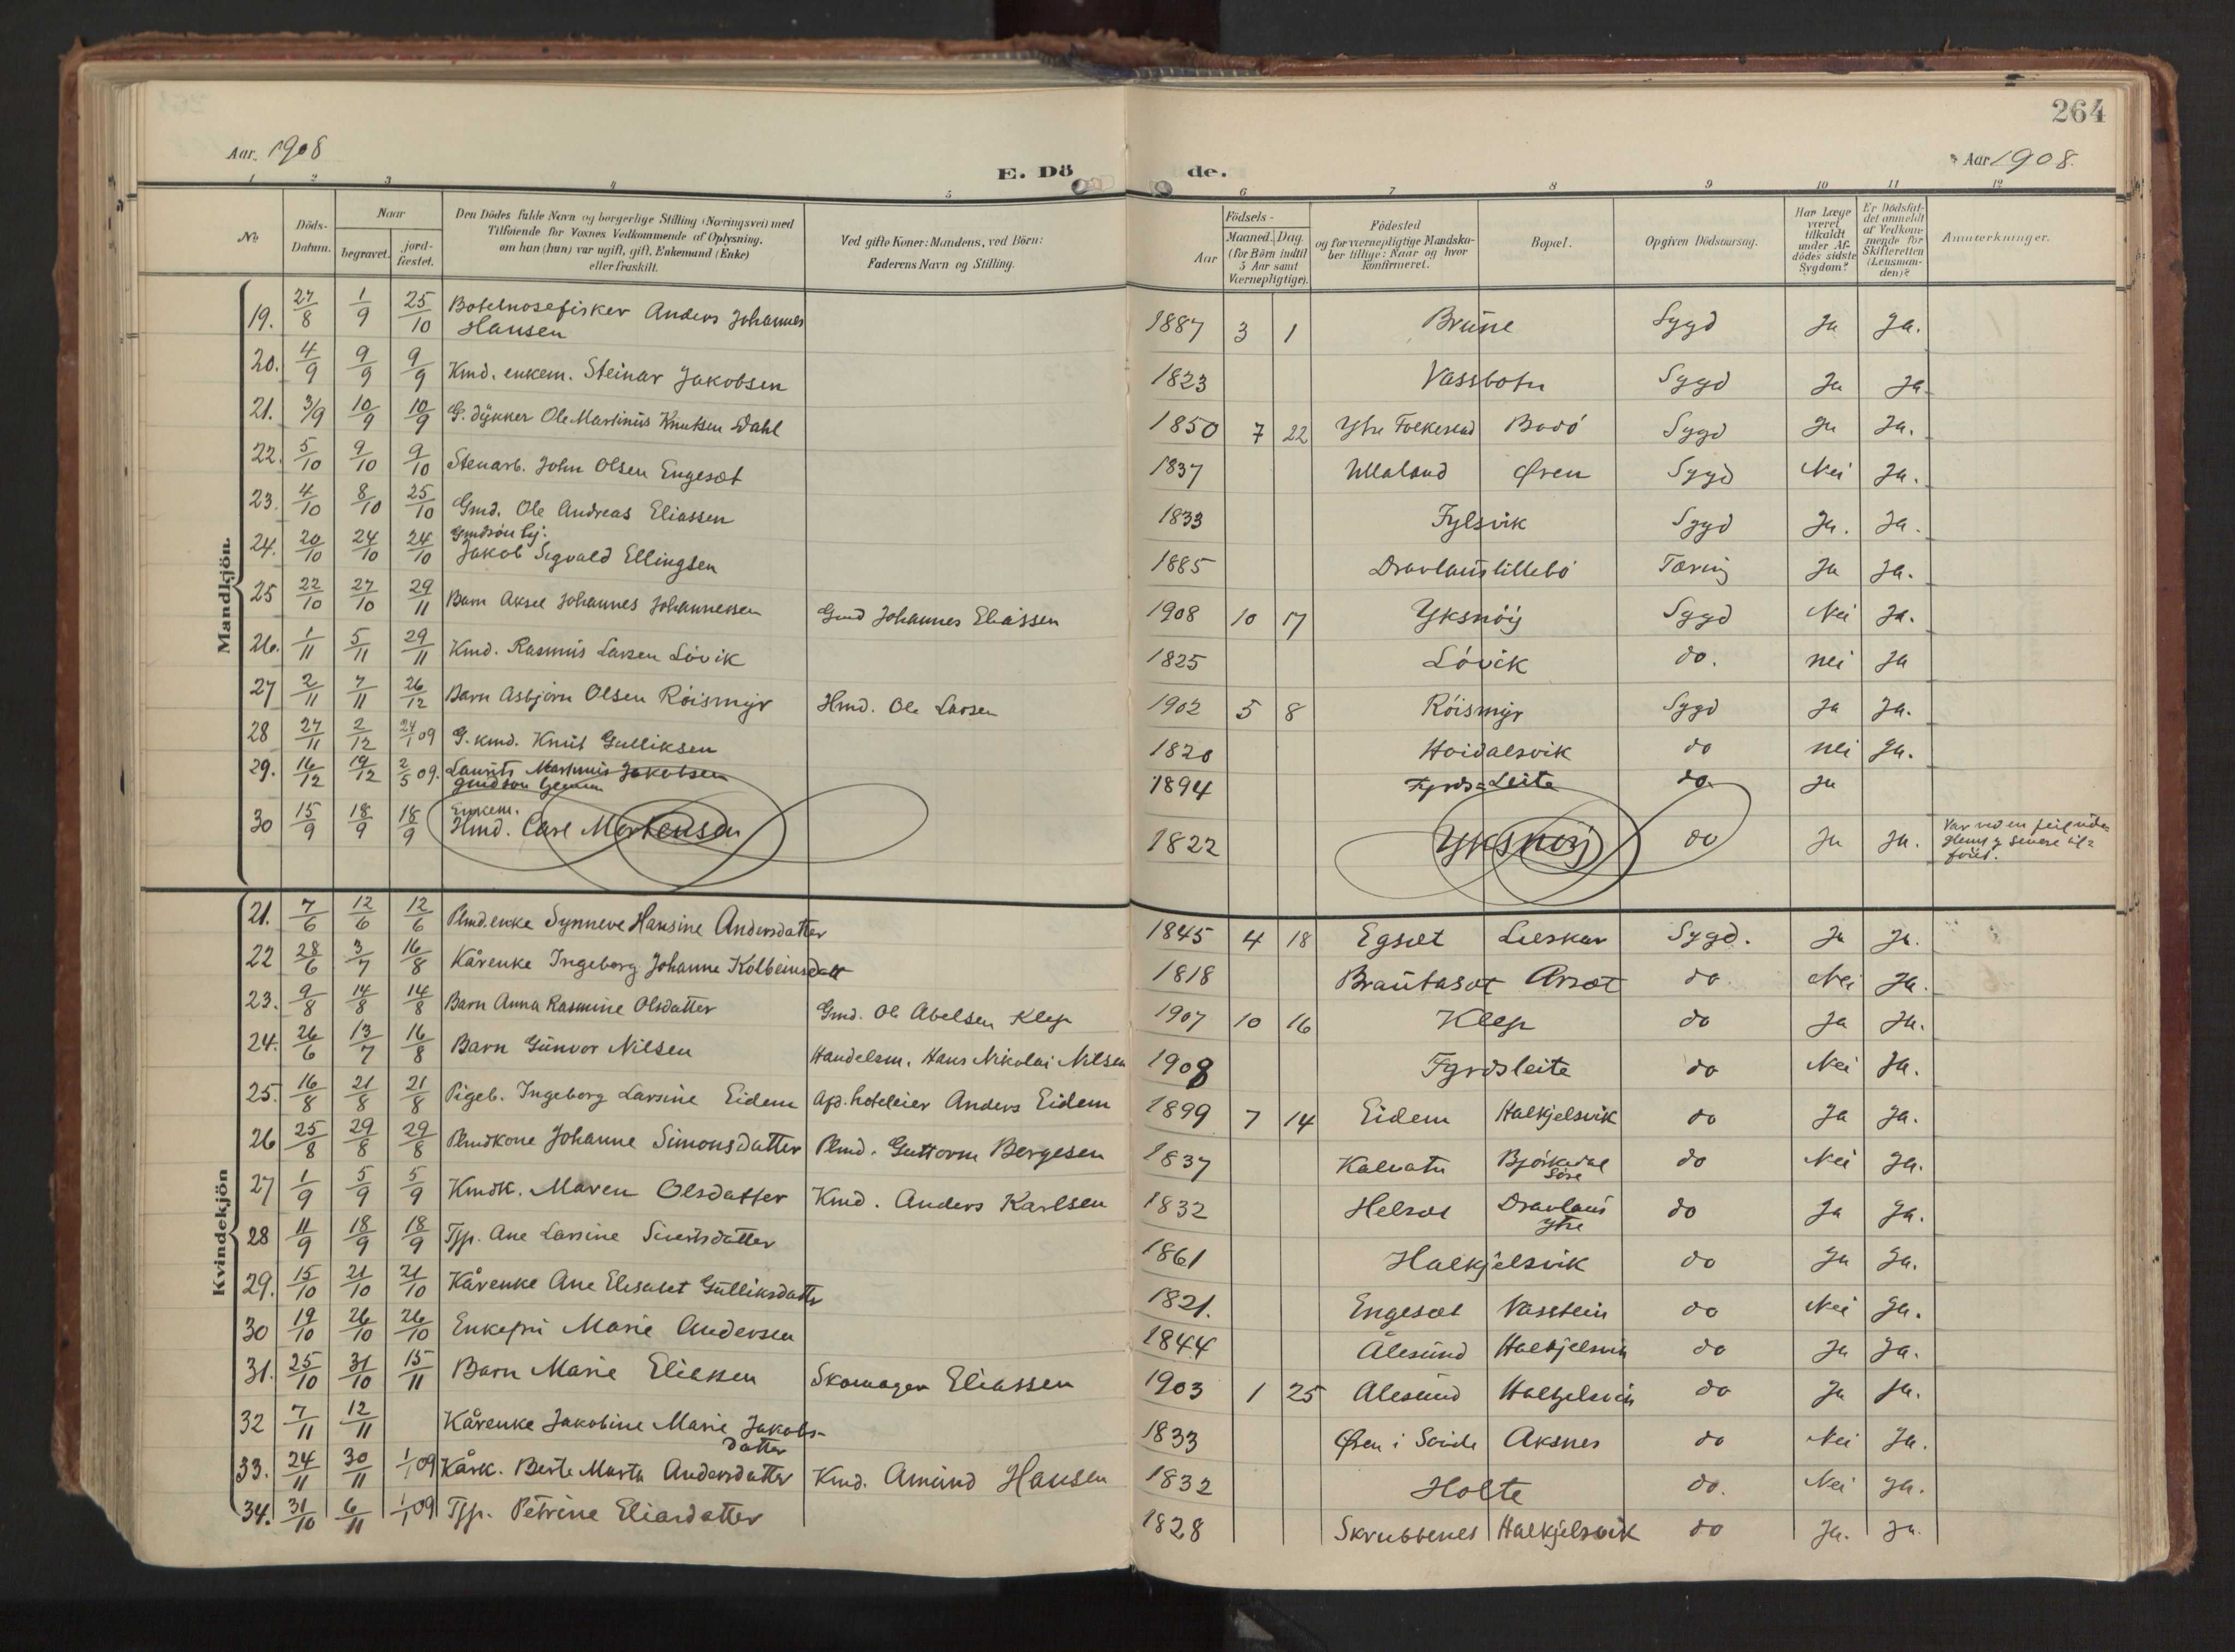 264
Aar 1908
Aar 1908.
E. Dö
de.
1 2 3 4 5 6 7 8 9 10 11 12
No.
Döds-Datum.
Naar
begravet.
jord-fæstet.
Den Dödes fulde Navn og borgerlige Stilling (Næringsvei) med
Tilföiende for Voxnes Vedkommende af Oplysning,
om han (hun) var ugift, gift, Enkemand (Enke)
eller fraskilt.
Ved gifte Koner: Mandens, ved Börn:
Faderens Navn og Stilling.
Födsels-
Aar
Maaned. Dag
(for Börn indtil
5 Aar samt
Værnepligtige).
Födested
og for værnepligtige Mandska-
ber tillige: Naar og hvor
konfirmeret.
Bopæl.
Opgiven Dödsaarsag.
Har Læge
været
tilkaldt
under Af-
dödes sidste
Sygdom?
Er Dödsfal-
det anmeldt
af Vedkom-
mende for
Skifteretten
(Lensman-
den)?
Anmærkninger.
Mandkjön.
19. 27/8 1/9 25/10 Anders Johannes Hansen 1887 3 1 Brüne Sygd Ja Ja.
20. 4/9 9/9 9/9 Kmd. enkem. Steinar Jakobsen 1823 Vassbotn Sygd Ja Ja
21. 3/9 10/9 10/9 G. dykker Ole Martinus Knutsen Dahl 1850 7 22 Ytre Folkestad Bodö Sygd Ja Ja.
22. 5/10 9/10 9/10 Stenarb. John Olsen Engeset 1837 Ullaland Øren Sygd Nei Ja.
23. 4/10 8/10 25/10 Gmd. Ole Andreas Eliassen 1833 Fylsvik Sygd Ja. Ja.
24. 20/10 24/10 24/10 Jakob Sigvald Ellingsen 1885 Dravlauslillebö Tæring Ja Ja.
25 22/10 27/10 29/11 Barn Aksel Johannes Johannessen Gmd Johannes Eliassen 1908 10 17 Yksnöy Sygd Nei Ja.
26. 1/11 5/11 29/11 Kmd. Rasmus Larsen Lövik 1825 Lövik do. nei Ja
27 2/11 7/11 26/12 Barn Asbjörn Olsen Röismyr Hmd. Ole Larsen 1902 5 8 Röismyr Sygd Ja Ja.
28 27/11 2/12 24/1 09 G. kmd. Knut Gulliksen 1820 Hoidalsvik do nei Ja.
29. 16/12 19/12 2/5 09. Laurits Martinus Jakobsen 1894 Fyrds-Leite do Ja
30 15/9 18/9 18/9 Enkem. Hmd. Carl Mortensen 1822 Yksnöy do Ja Ja. Var ved en
Kvindekjön
21. 7/6 12/6 12/6 Plmd.enke Synneve Hansine Andersdatter 1845 4 18 Egset Leeskar Sygd. Ja Ja.
22 28/6 3/7 16/8 Kårenke Ingeborg Johanne Kolbeinsdatt 1818 Brautaset Årset do. Nei Ja.
23. 9/8 14/8 14/8 Barn Anna Rasmine Olsdatter Gmd. Ole Abelsen Klep 1907 10 16 Klep do Ja Ja.
24. 26/6 13/7 16/8 Barn Gunvor Nilsen Handelsm. Hans Nikolai Nilsen 1908 Fyrdsleite do Nei Ja.
25. 16/8 21/8 21/8 Pigeb. Ingeborg Larsine Eidem Ap. hoteleier Anders Eidem 1899 7 14 Eidem Halkjelsvik do Ja Ja.
26 25/8 29/8 29/8 Plmdkone Johanne Simonsdatter Plmd. Guttorm Bergesen 1837 Kalvatn Björkedal Söre do Nei Ja.
27 1/9 5/9 5/9 Kmdk. Maren Olsdatter Kmd. Anders Karlsen 1832 Helset Dravlaus ytre do Ja Ja.
28 11/9 18/9 18/9 Tjp. Ane Larsine Sivertsdatter 1861 Halkjelsvik do Ja Ja.
29. 15/10 21/10 21/10 Kårenke Ane Elisabet Gulliksdattr 1821. Engeset Vasstein do Nei Ja.
30 19/10 26/10 26/10 Enkefru Marie Andersen 1844 Ålesund Halkjelsvik do Ja Ja.
31. 25/10 31/10 15/11 Barn Marie Eliassen Skomager Eliassen 1903 1 25 Ålesund Halkjelsvik do Ja Ja.
32 7/11 12/11 Kårenke Jakobine Marie Jakobs-
datter 1833 Øsen i Aksnes do Nei Ja.
33. 24/11 30/11 1/1 09 Kårk. Berte Marta Andersdatter Kmd. Amund Hansen 1832 Holte do. Nei Ja.
34. 31/10 6/11 1/1 09 Tjp. Petrine Eliasdatter 1828 Skrubbenes Halkjelsvik do Ja. Ja.